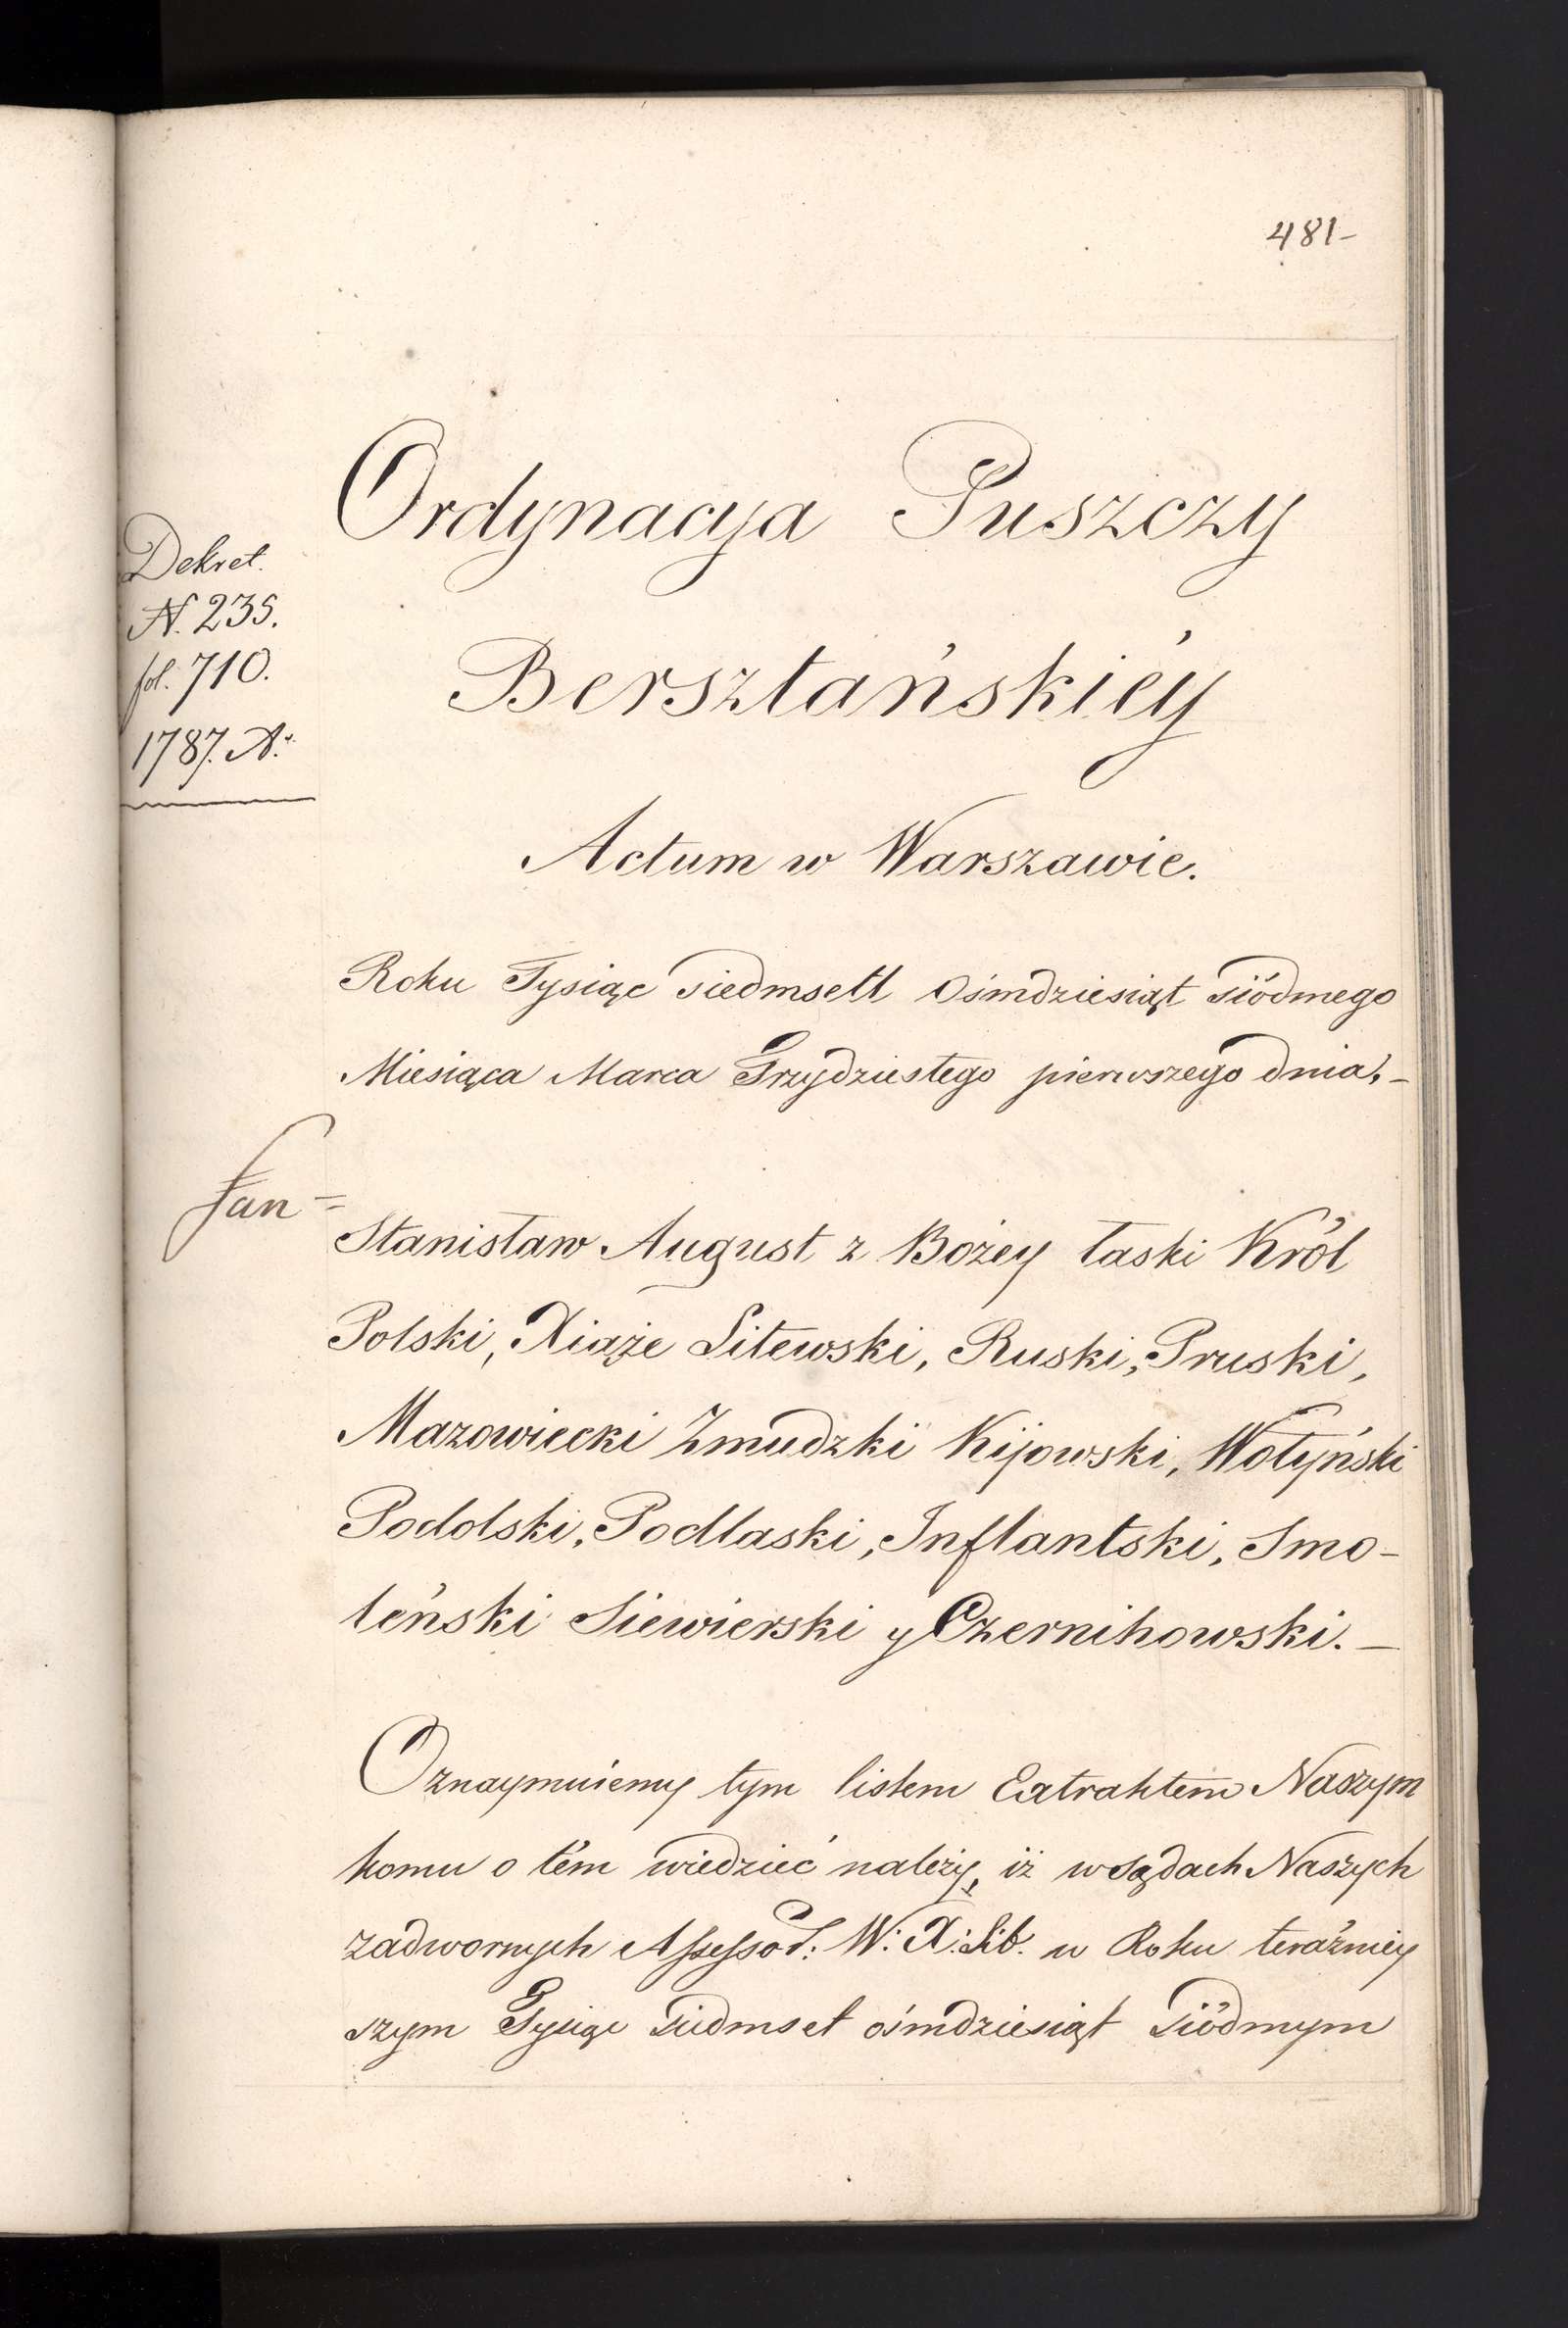 481-
Ordynacyja Puszczy
Dekret.
N. 235.
fol. 710.
1787. A.
Bersztańskiéy
Actum w Warszawie.
Roku Tysiąc siedmsett Ośmdziesiąt siódmego
Miesiąca Marca Trzydziestego pierwszego dnia,-
Stanisław August z Bożey łaski Król
Polski, Xiąże Litewski, Ruski, Pruski,
Mazowiecki Zmudzki Kijowski, Wołyński
Podolski, Podlaski, Inflantski, Smo-
leński Siewierski y Czernihowski.-
Oznaymuiemy tym listem Extraktem Naszym
komu o tém wiedzieć należy, iż w Sądach Naszych
zadwornych Assessor: W: X: Lit. w Roku teraźniéy
szym Tysiąc siedmset ośmdziesiąt siódmym